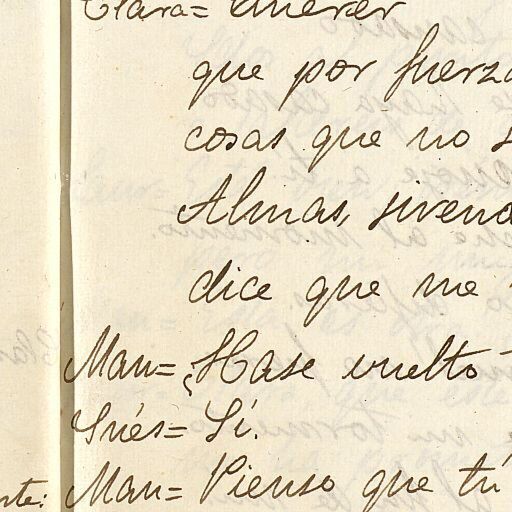 Clara= Querer
que por fuerza
cosas que no s
Almas, jivena
dice que me
Man= ¿Hase vuelto
Inés= Sí.
Man= Pienso que tú
rte: